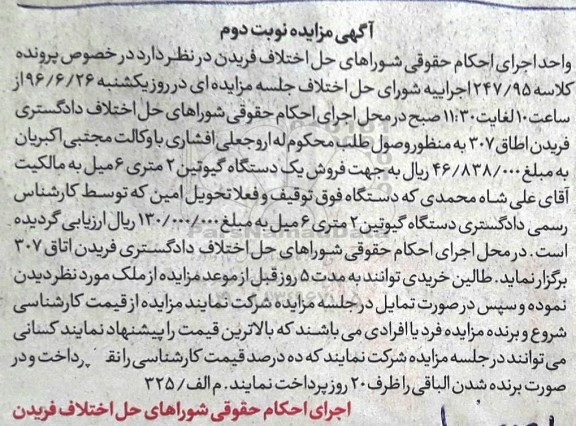 آگهی مزایده نوبت دوم
واحد اجرای احکام حقوقی شوراهای حل اختلاف فریدن در نظر دارد در خصوص پرونده
کلاسه ۲۴۷/۹۵ اجراییه شورای حل اختلاف جلسه مزایده ای در روز یکشنبه ۹۶/۶/۲۶ از
ساعت ۱۰ لغایت ۱۱:۳۰ صبح در محل اجرای احکام حقوقی شوراهای حل اختلاف دادگستری
فریدن اطاق ۳۰۷ به منظور وصول طلب محکوم له اروجعلی افشاری با وکالت مجتبی اکبریان
به مبلغ ۴۶/۸۳۸/۰۰۰ ریال به جهت فروش یک دستگاه گیوتین ۲ متری ۶ میل به مالکیت
آقای علی شاه محمدی که دستگاه فوق توقیف و فعلا تحویل امین که توسط کارشناس
رسمی دادگستری دستگاه گیوتین ۲ متری ۶ میل به مبلغ ۱۳۰/۰۰۰/۰۰۰ ریال ارزیابی گردیده
است . در محل اجرای احکام حقوقی شوراهای حل اختلاف دادگستری فریدن اتاق ۳۰۷
برگزار نماید. طالبن خریدی توانند به مدت ۵ روز قبل از موعد مزایده از ملک مورد نظر دیدن
نموده و سپس در صورت تمایل در جلسه مزایده شرکت نمایند مزایده از قیمت کارشناسی
شروع و برنده مزایده فرد یا افرادی می باشند که بالاترین قیمت را پیشنهاد نمایند کسانی
می توانند در جلسه مزایده شرکت نمایند که ده درصد قیمت کارشناسی را نقد پرداخت و در
صورت برنده شدن الباقی را ظرف ۲۰ روز پرداخت نمایند. م الف/ ۳۲۵
اجرای احکام حقوقی شوراهای حل اختلاف فریدن